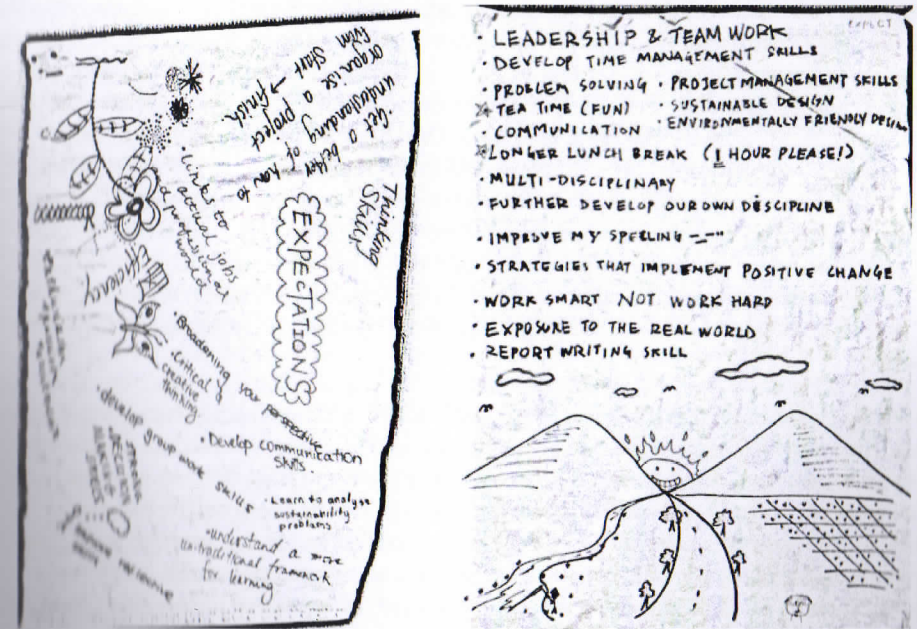 Get a better
understanding of how to
organise a project
from start → finish
Thinking
Skills
EXPECTATIONS
Links to
actual jobs
& professional
world
Efficiency
• Broadening your perspective
• Critical
creative
thinking
• develop group work skills
• Develop communication
skills.
• Learn to analyse
sustainability
problems
• understand a more
un-traditional framework
for learning
EXPECT
• LEADERSHIP & TEAM WORK
• DEVELOP TIME MANAGEMENT SKILLS
• PROBLEM SOLVING • PROJECT MANAGEMENT SKILLS
TEA TIME (FUN) • SUSTAINABLE DESIGN
• COMMUNICATION • ENVIRONMENTALLY FRIENDLY DESIGN
LONGER LUNCH BREAK (1 HOUR PLEASE!)
• MULTI-DISCIPLINARY
• FURTHER DEVELOP OUR OWN DISCIPLINE
• IMPROVE MY SPERLING
• STRATEGIES THAT IMPLEMENT POSITIVE CHANGE
• WORK SMART NOT WORK HARD
• EXPOSURE TO THE REAL WORLD
• REPORT WRITING SKILL